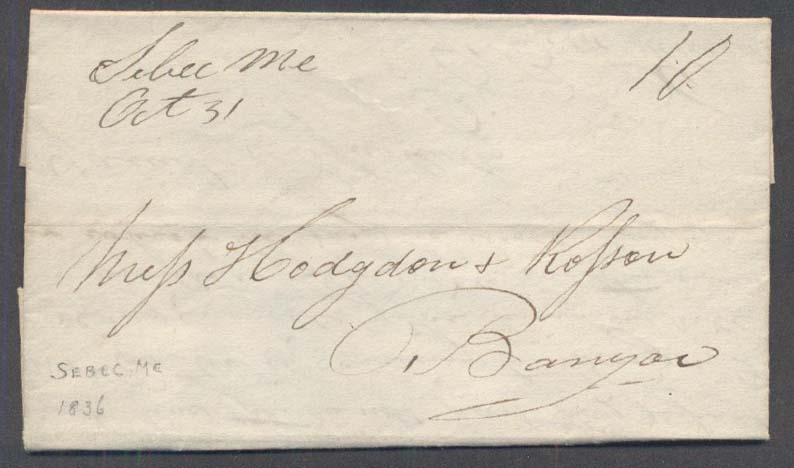 Sebec Me
Oct 31
10
Mess Hodgdon &
Bangor
SEBEC. ME
1836